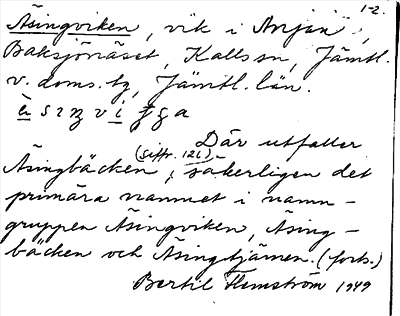 1-2.
Åsingviken, vik i Anjan,
Baksjönäset, Kalls sn, Jämtl.
v. doms. tg, Jämtl. län.
Där utfaller
(siffr. 126)
Åsingbäcken, säkerligen det
primära namnet i namn-
gruppen Åsingviken, Åsing-
bäcken och Åsingtjärnen. (forts.)
Bertil Flemström 1949